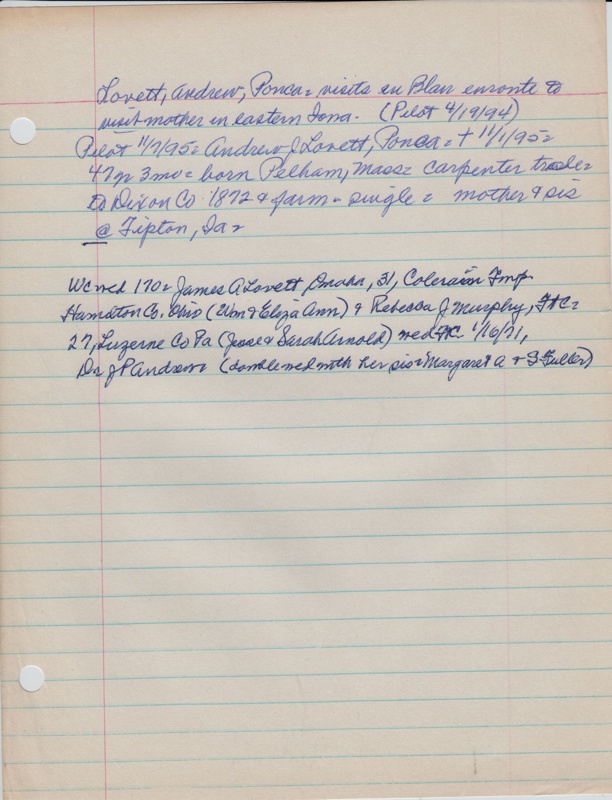 Lovett, Andrew, Ponca = visits in Blair enroute to
visit mother in eastern Iowa. (Pilot 4/19/94)
Pilot 11/7/95 = Andrew J Lovett, Ponca = + 11/1/95 =
47y 3mo = born Pelham, Mass = carpenter trade =
to Dixon Co 1872 & farm = single = mother & sis
@ Tipton, Ia =
WC wed 170 = James A Lovett, Omaha, 31, Colerain Tmp
Hamilton Co. Ohio (Wm & Eliza Ann) & Rebecca J. Murphy, FtC =
27, Luzerne Co Pa (Jesse & Sarah Arnold) wed FtC 1/16/71,
Dr JP Andrews (double wed with her sis = Margaret A & S Fuller)